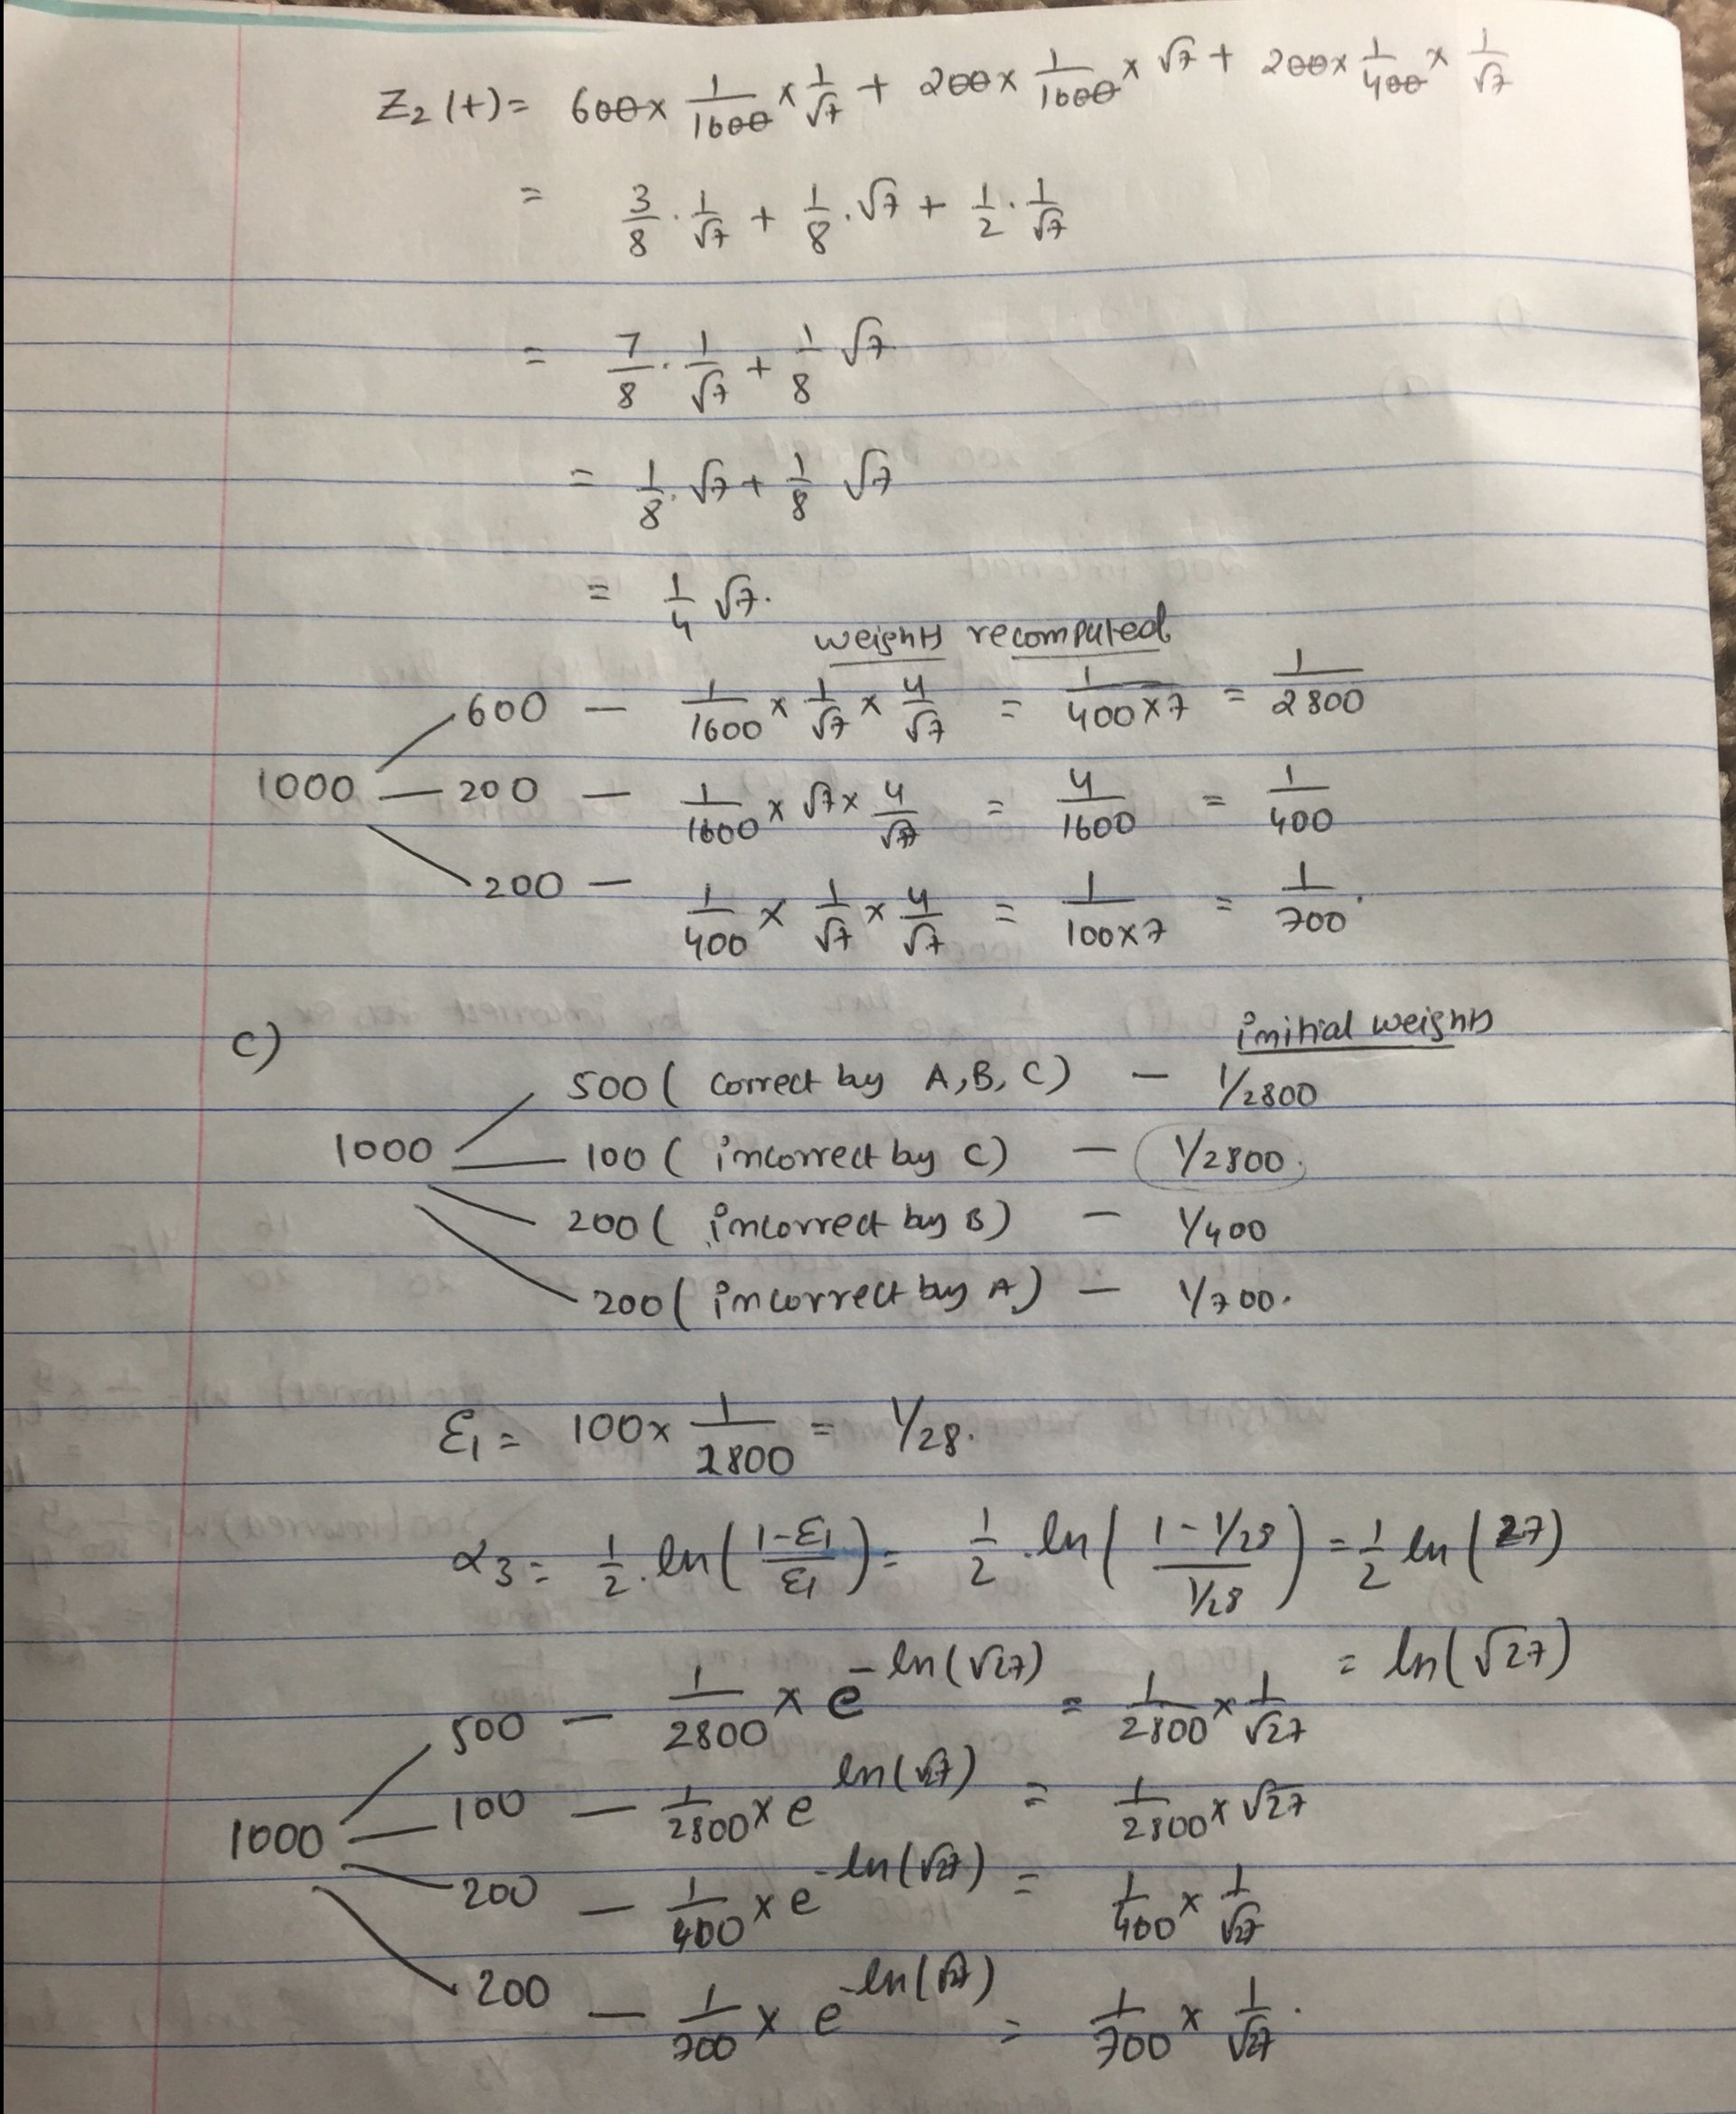 Z₂(t) = 600 × 1/1600 × 1/√7 + 200 × 1/1600 × √7 + 200 × 1/400 × 1/√7
= 3/8 · 1/√7 + 1/8 · √7 + 1/2 · 1/√7
= 7/8 · 1/√7 + 1/8 √7
= 1/8 · √7 + 1/8 √7
= 1/4 √7.
weights recomputed
600 — 1/1600 × 1/√7 × 4/√7 = 1/400×7 = 1/2800
1000 — 200 — 1/1600 × √7 × 4/√7 = 4/1600 = 1/400
200 — 1/400 × 1/√7 × 4/√7 = 1/100×7 = 1/700.
c) initial weights
500 ( correct by A, B, C) — 1/2800
1000 — 100 ( incorrect by C) — 1/2800.
200 ( incorrect by B) — 1/400
200 ( incorrect by A) — 1/700.
ε₁ = 100 × 1/2800 = 1/28.
α₃ = 1/2 . ln( 1-ε₁/ε₁ ) = 1/2 . ln( 1-1/28 / 1/28 ) = 1/2 ln(27)
= ln(√27)
500 — 1/2800 × e^-ln(√27) = 1/2800 × 1/√27
100 — 1/2800 × e^ln(√27) = 1/2800 × √27
1000
200 — 1/400 × e^-ln(√27) = 1/400 × 1/√27
200 — 1/700 × e^-ln(√27) = 1/700 × 1/√27.